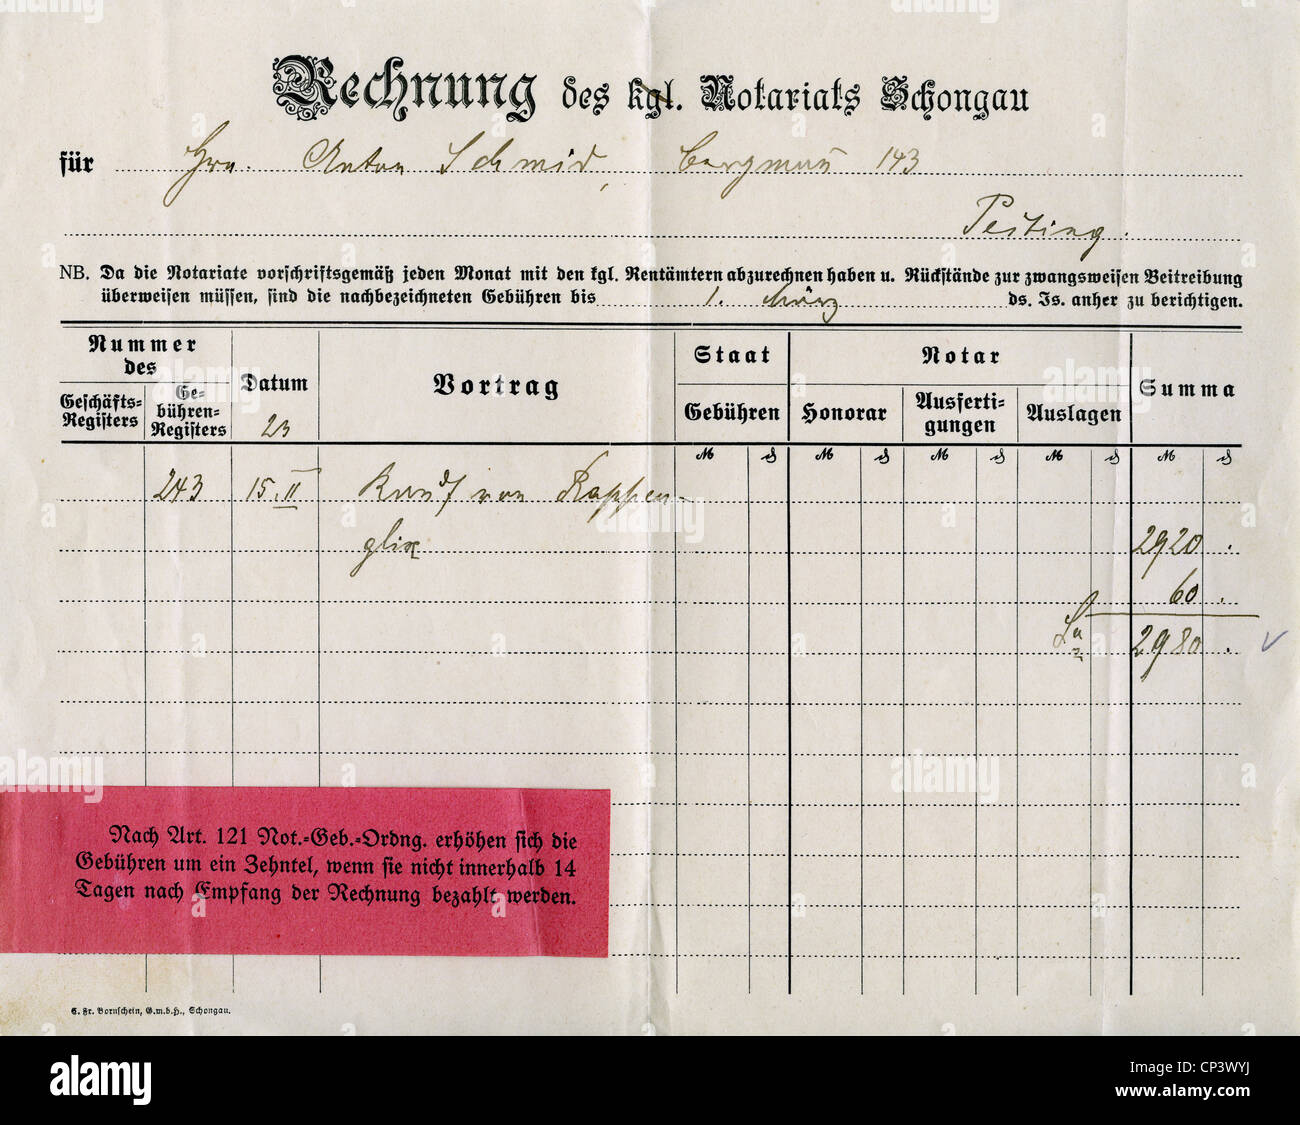 Rechnung des kgl. Notariats Schongau
für Hrn. Anton Schmid, Bergmann 143
Peiting.
NB. Da die Notariate vorschriftsgemäß jeden Monat mit den kgl. Rentämtern abzurechnen haben u. Rückstände zur zwangsweisen Beitreibung
überweisen müssen, sind die nachbezeichneten Gebühren bis 1. März ds. Js. anher zu berichtigen.
Nummer des
Geschäfts-Registers
Gebühren-Registers
Datum
23
Vortrag
Staat
Gebühren
Notar
Honorar
Ausfertigungen
Auslagen
Summa
M ₰ M ₰ M ₰ M ₰ M ₰
243 15. II von
2920 .
60 .
2980 .
Nach Art. 121 Not.=Geb.=Ordng. erhöhen sich die
Gebühren um ein Zehntel, wenn sie nicht innerhalb 14
Tagen nach Empfang der Rechnung bezahlt werden.
C. Fr. Bornschein, G.m.b.H., Schongau.
alamy
Image ID: CP3WYJ
www.alamy.com